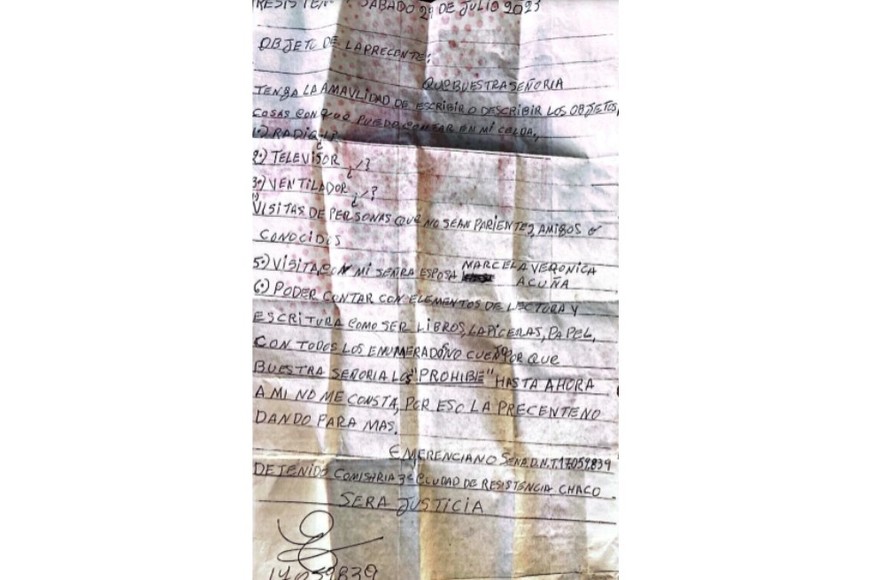 SABADO 29 DE JULIO 2023
OBJETO DE LA PRECENTE:
QUE BUESTRA SEÑORIA
TENGA LA AMAVLIDAD DE ESCRIBIR O DESCRIBIR LOS OBJETOS,
COSAS CON QUE PUEDO CONTAR EN MI CELDA,
1•) RADIO ¿?
2•) TELEVISOR ¿/?
3•) VENTILADOR ¿/?
VISITAS DE PERSONAS QUE NO SEAN PARIENTES, AMIGOS O
CONOCIDOS
5•) VISITA CON MI SEÑRA ESPOSA MARCELA VERONICA
ACUÑA
6•) PODER CONTAR CON ELEMENTOS DE LECTURA Y
ESCRITURA COMO SER LIBROS, LAPICERAS, PAPEL,
CON TODOS LOS ENUMERADO NO CUENTO POR QUE
BUESTRA SEÑORIA LOS "PROHIBE" HASTA AHORA
A MI NO ME CONSTA, POR ESO LA PRECENTE NO
DANDO PARA MAS.
EMERENCIANO SENA D.N.I. 17059839
DETENIDO COMISARIA 3ª CIUDAD DE RESISTENCIA CHACO.
SERA JUSTICIA